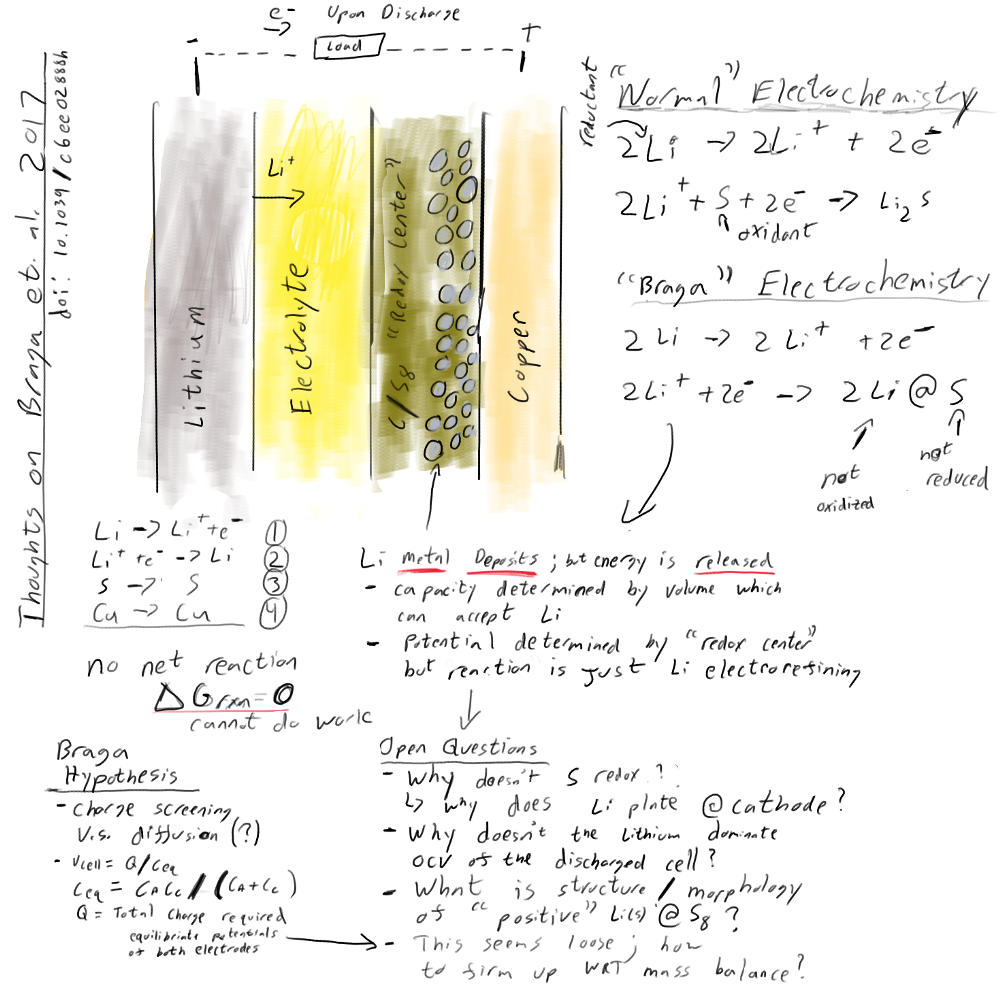 Thoughts on Braga et. al. 2017
doi: 10.1039/c6ee02888h
e⁻ Upon Discharge
→
- Load +
Lithium
Li⁺
→
Electrolyte
C/S8 "Redox Center"
Copper
reductant
"Normal" Electrochemistry
2Li → 2Li⁺ + 2e⁻
2Li⁺ + S + 2e⁻ → Li₂S
oxidant
"Braga" Electrochemistry
2Li → 2Li⁺ + 2e⁻
2Li⁺ + 2e⁻ → 2Li @ S
not
oxidized
not
reduced
Li → Li⁺ + e⁻ ①
Li⁺ + e⁻ → Li ②
S → S ③
Cu → Cu ④
no net reaction
ΔGrxn = 0
cannot do work
Li metal Deposits ; but energy is released
- capacity determined by volume which
can accept Li
- Potential determined by "redox center"
but reaction is just Li electrorefining
Braga
Hypothesis
- Charge screening
v.s. diffusion (?)
- Vcell = Q/Ceq
Ceq = CACc / (CA + Cc)
Q = Total charge required
equilibriate potentials
of both electrodes
Open Questions
- Why doesn't S redox ?
↳ why does Li plate @ cathode ?
- Why doesn't the Lithium dominate
OCV of the discharged cell ?
- What is structure / morphology
of "positive" Li(s) @ S8 ?
- This seems loose ; how
to firm up WRT mass balance ?